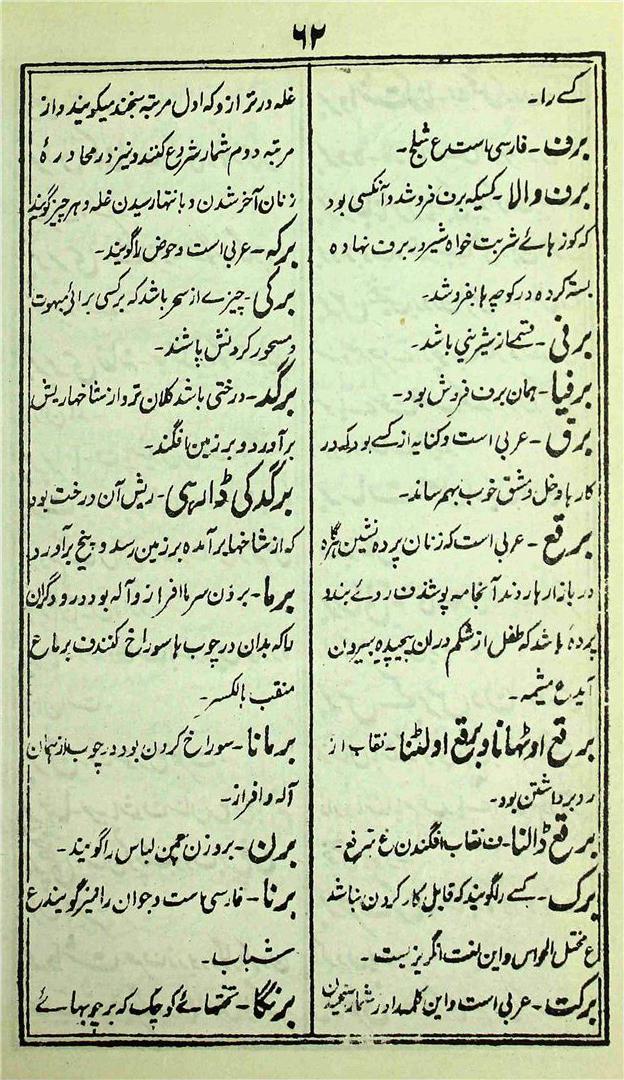 ٦٢
کسے را۔
برف۔ فارسی است ع ثلج۔
برف والا۔ کسیکہ برف فروشد و آنکسی بود
کہ کوزہائے شربت خواہ شیر در برف نہادہ
بستہ کردہ در کوچہ ہا بفروشد۔
برفی۔ قسمے از شیرینی باشد۔
برفیا۔ ہمان برف فروش بود۔
برق۔ عربی است و کنایہ از کسے بود کہ در
کارہا دخل و مشق خوب بہم رساند۔
برقع۔ عربی است کہ زنان پردہ نشین ہرگاہ
در بازارہا روند آنجامہ پوشند ف روئے بند و
پردہ باشد کہ طفل از شکم دران پیچیدہ بیرون
آید ع مشیمہ۔
برقع اوٹھانا و برقع اولٹنا۔ نقاب از
رو برداشتن بود۔
برقع ڈالنا۔ ف نقاب افگندن ع تبرقع۔
برک۔ کسے را گویند کہ قابل کار کردن نباشد
ع مختل الحواس و این لغت انگریزیست۔
برکت۔ عربی است و این کلمہ را در شمار سنجیدن
غلہ در ترازو کہ اول مرتبہ سنجند میگویند و از
مرتبہ دوم شمار شروع کنند و نیز در محاورۂ
زنان آخر شدن و بانتہا رسیدن غلہ و ہر چیز گویند
برکہ۔ عربی است و حوض را گویند۔
برکی۔ چیزے از سحر باشد کہ بر کسی برائے مبہوت
و مسحور کردنش پاشند۔
برگد۔ درختی باشد کلان تر و از شاخہا ریش
برآورد و بر زمین افگند۔
برگد کی ڈارہی۔ ریش آن درخت بود
کہ از شاخہا برآمدہ بر زمین رسد و بیخ برآورد
برما۔ بروزن سرما افراز و آلہ بود درودگران
را کہ بدان در چوب ہا سوراخ کنند ف برماع
منقب بالکسر۔
برمانا۔ سوراخ کردن بود در چوب از ہمان
آلہ و افراز۔
برن۔ بروزن چمن لباس را گویند۔
برنا۔ فارسی است و جوان را نیز گویند ع
شباب۔
برنگا۔ تختہائے کوچک کہ بر چوبہائے